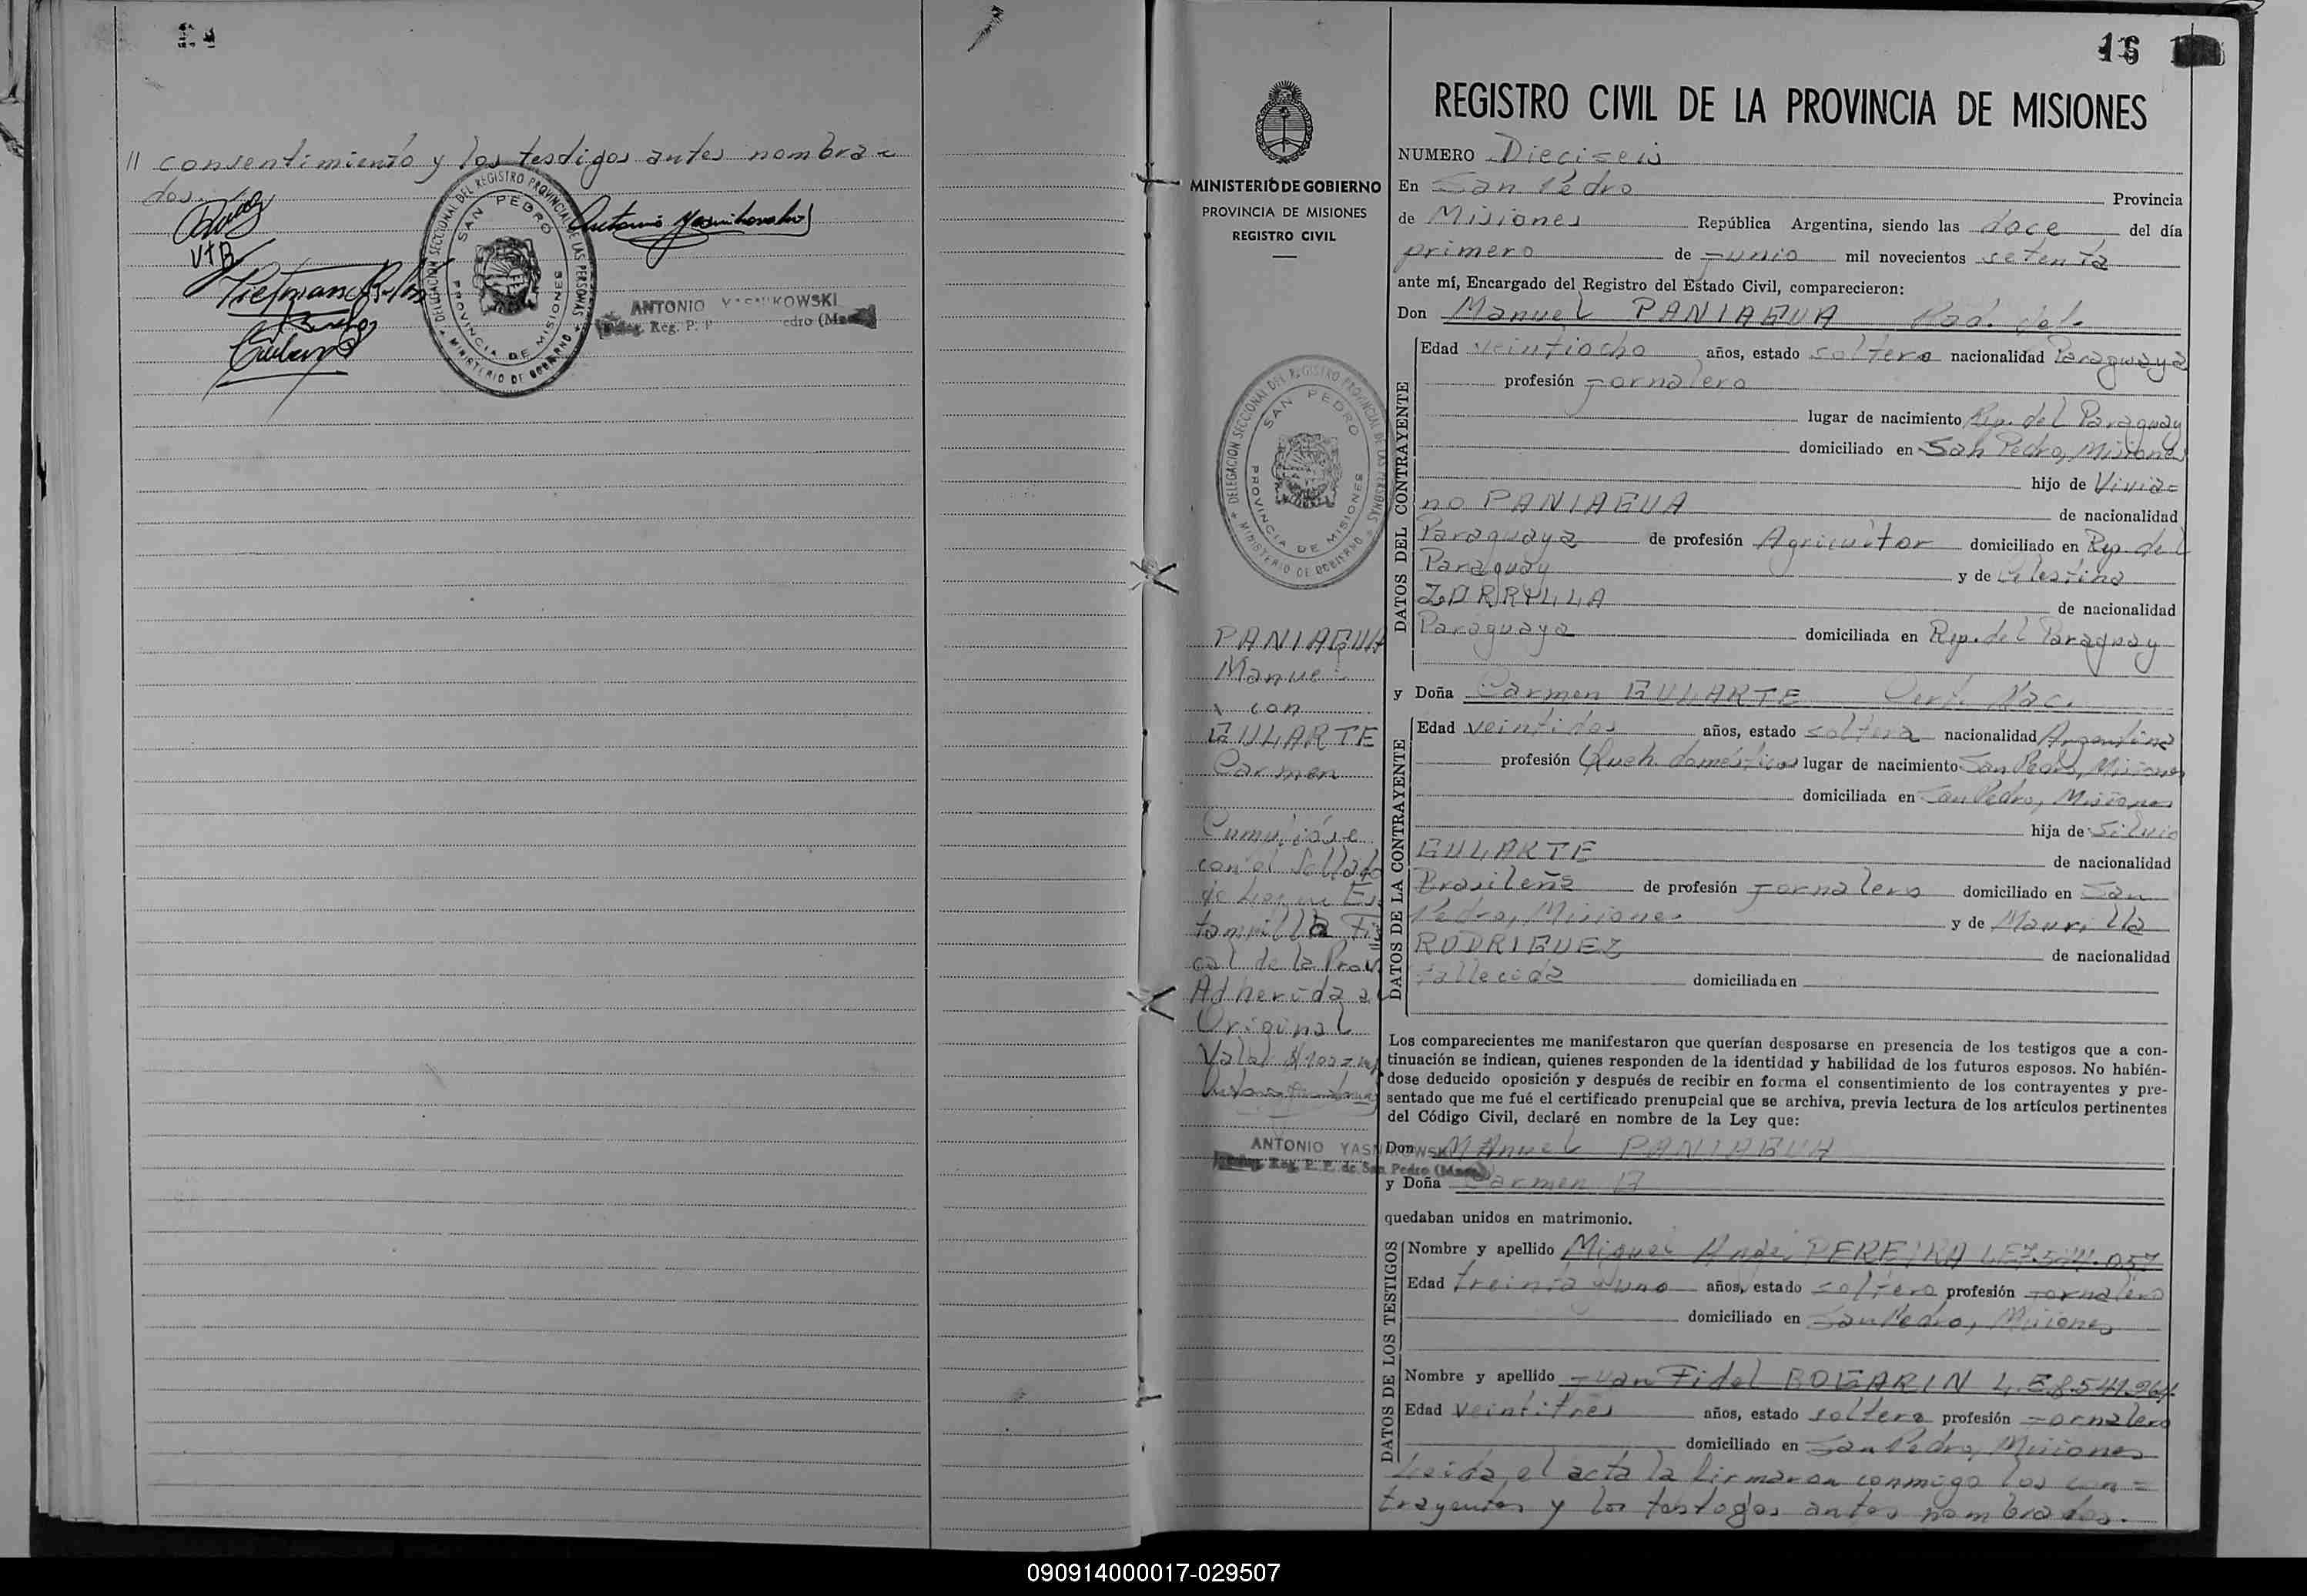 // consentimiento y los testigos antes nombra=
dos.
DELEGACION SECCIONAL DEL REGISTRO PROVINCIAL DE LAS PERSONAS
SAN PEDRO
PROVINCIA DE MISIONES
MINISTERIO DE GOBIERNO
ANTONIO KOWSKI
Reg. P. P edro
16
MINISTERIO DE GOBIERNO
PROVINCIA DE MISIONES
REGISTRO CIVIL
DELEGACION SECCIONAL DEL REGISTRO PROVINCIAL DE LAS PERSONAS
SAN PEDRO
PROVINCIA DE MISIONES
MINISTERIO DE GOBIERNO
PANIAGUA
Manuel
con
GULARTE
Carmen
con el Sellado
de Ley en Es
tampilla Fis
cal de la Prov.
Adherida al
Original
Valor
ANTONIO YASNIKOWSKI
Reg. P. P. de San Pedro
REGISTRO CIVIL DE LA PROVINCIA DE MISIONES
NUMERO Dieciseis
En San Pedro Provincia
de Misiones República Argentina, siendo las doce del día
primero de Junio mil novecientos setenta
ante mí, Encargado del Registro del Estado Civil, comparecieron:
Don Manuel PANIAGUA
DATOS DEL CONTRAYENTE
Edad veintiocho años, estado soltero nacionalidad Paraguaya
profesión Jornalero
lugar de nacimiento Rep. del Paraguay
domiciliado en San Pedro, Misiones
hijo de Vivia=
no PANIAGUA de nacionalidad
Paraguaya de profesión Agricultor domiciliado en Rep. del
Paraguay y de Celestina
de nacionalidad
Paraguaya domiciliada en Rep. del Paraguay
y Doña Carmen GULARTE Cert. Nac.
DATOS DE LA CONTRAYENTE
Edad veintidos años, estado soltera nacionalidad Argentina
profesión Queh. domésticos lugar de nacimiento San Pedro, Misiones
domiciliada en San Pedro, Misiones
hija de Silvio
GULARTE de nacionalidad
Brasileña de profesión Jornalero domiciliado en San
Pedro, Misiones y de Maurilia
RODRIGUEZ de nacionalidad
fallecida domiciliada en
Los comparecientes me manifestaron que querían desposarse en presencia de los testigos que a con-
tinuación se indican, quienes responden de la identidad y habilidad de los futuros esposos. No habién-
dose deducido oposición y después de recibir en forma el consentimiento de los contrayentes y pre-
sentado que me fué el certificado prenupcial que se archiva, previa lectura de los artículos pertinentes
del Código Civil, declaré en nombre de la Ley que:
Don Manuel PANIAGUA
y Doña Carmen G
quedaban unidos en matrimonio.
DATOS DE LOS TESTIGOS
Nombre y apellido Miguel Angel PEREIRA
Edad treinta y uno años, estado soltero profesión Jornalero
domiciliado en San Pedro, Misiones
Nombre y apellido Juan Fidel BOGARIN
Edad veintitres años, estado soltero profesión Jornalero
domiciliado en San Pedro, Misiones
Leida el acta la firmaron conmigo los con=
trayentes y los testigos antes nombrados.
090914000017-029507